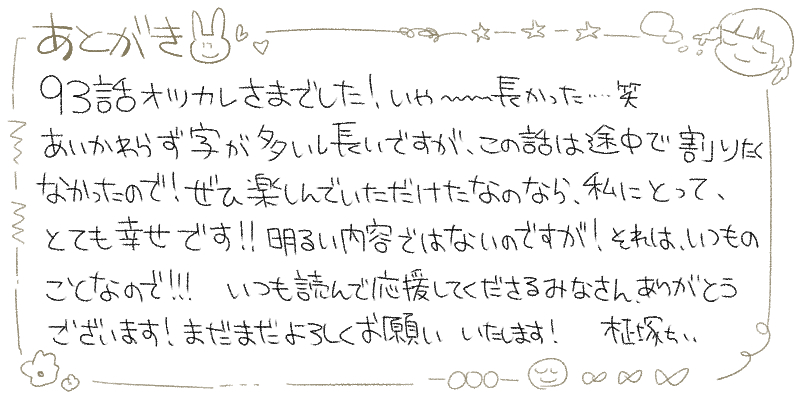 あとがき
93話オツカレさまでした！いや〜〜長かった‥‥笑
あいかわらず字が多いし長いですが、この話は途中で割りたく
なかったので！ぜひ楽しんでいただけたなのなら、私にとって、
とても幸せです！！明るい内容ではないのですが！それは、いつもの
ことなので！！！ いつも読んで応援してくださるみなさん、ありがとう
ございます！まだまだよろしくお願い いたします！ 塚ちい